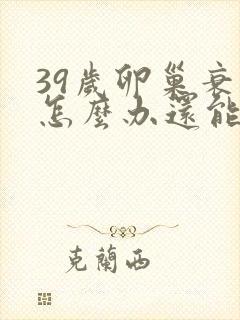 39歲卵巢衰
怎麼办還能
克蘭西